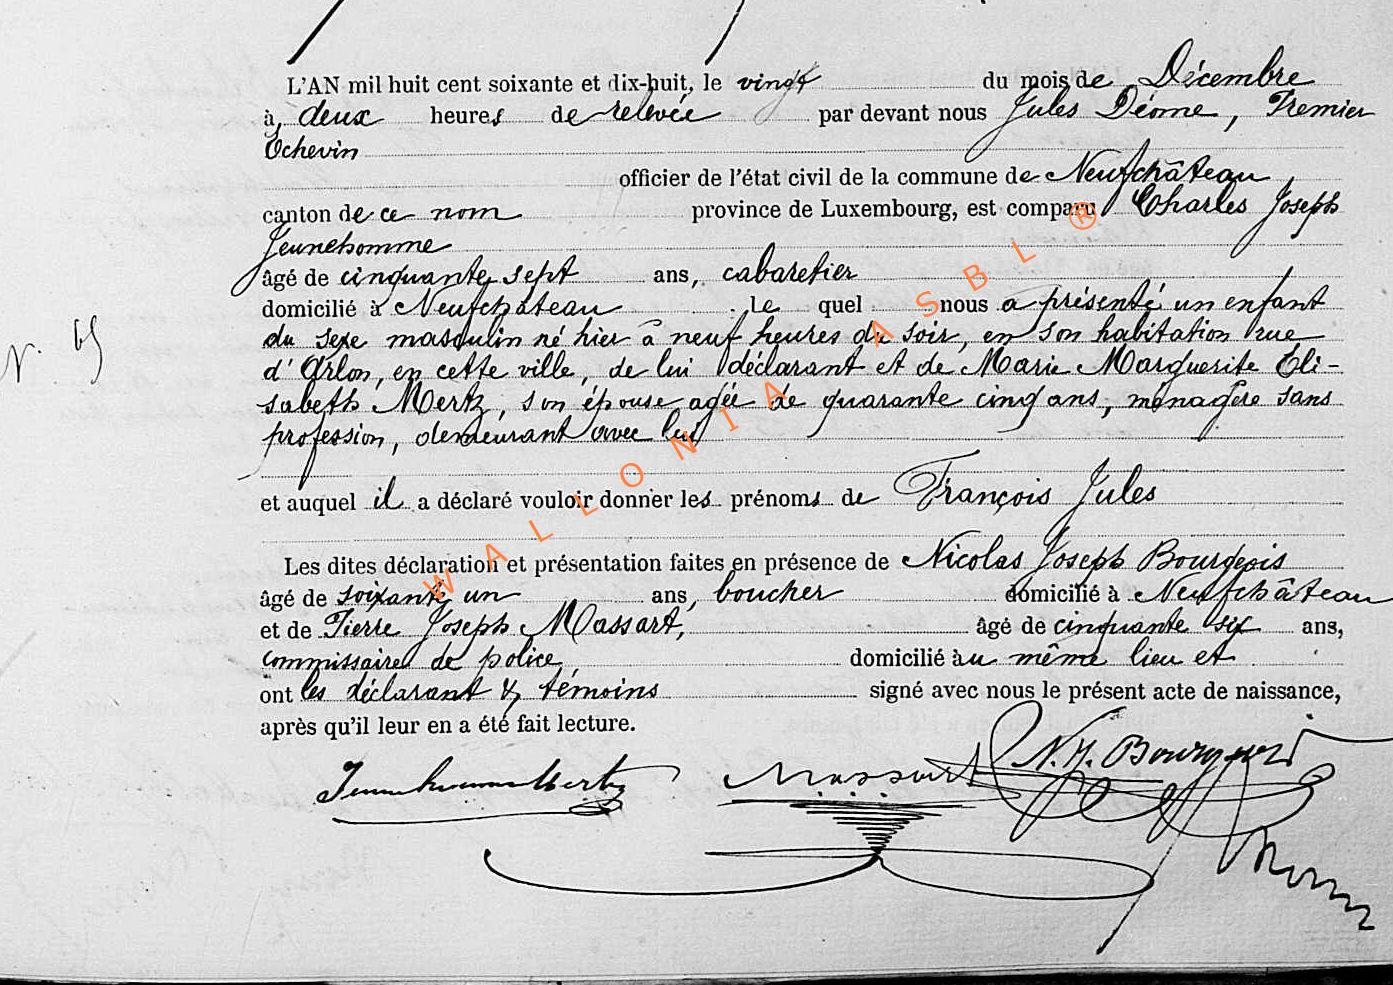 L'AN mil huit cent soixante et dix-huit, le vingt du mois de Décembre
à deux heures de relevée par devant nous Jules Déome, Premier
Echevin
officier de l'état civil de la commune de Neufchâteau
canton de ce nom province de Luxembourg, est comparu Charles Joseph
Jeunehomme
âgé de cinquante sept ans, cabaretier
domicilié à Neufchâteau le quel nous a présenté un enfant
du sexe masculin né hier à neuf heures du soir, en son habitation rue
N. 65
d'Arlon, en cette ville, de lui déclarant et de Marie Marguerite Eli-
sabeth Mertz, son épouse agée de quarante cinq ans, ménagère sans
profession, demeurant avec lui
et auquel il a déclaré vouloir donner les prénoms de François Jules
Les dites déclaration et présentation faites en présence de Nicolas Joseph Bourgeois
âgé de soixante un ans, boucher domicilié à Neufchâteau
et de Pierre Joseph Massart, âgé de cinquante six ans,
commissaire de police, domicilié au même lieu et
ont les déclarant & témoins signé avec nous le présent acte de naissance,
après qu'il leur en a été fait lecture.
Jeunehomme Mertz Massart N. J. Bourgeois
WALLONIA ASBL ®